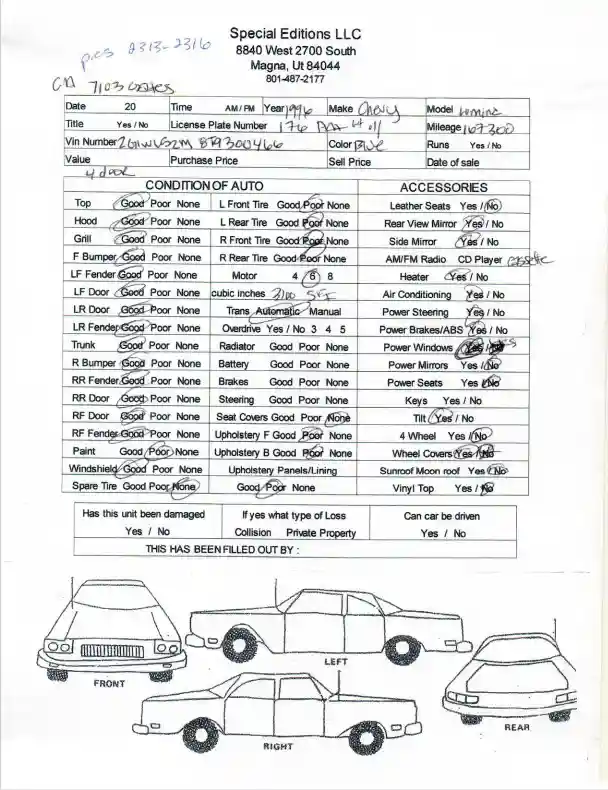 Special Editions LLC
8840 West 2700 South
Magna, Ut 84044
801-487-2177
pics 2313-2316
Date 20 Time AM / FM Year 1996 Make Chevy Model Lumina
Title Yes / No License Plate Number 176 Mileage 167300
Vin Number Color Blue Runs Yes / No
Value Purchase Price Sell Price Date of sale
4 door
CONDITION OF AUTO ACCESSORIES
Top Good Poor None L Front Tire Good Poor None Leather Seats Yes / No
Hood Good Poor None L Rear Tire Good Poor None Rear View Mirror Yes / No
Grill Good Poor None R Front Tire Good Poor None Side Mirror Yes / No
F Bumper Good Poor None R Rear Tire Good Poor None AM/FM Radio CD Player Cassette
LF Fender Good Poor None Motor 4 6 8 Heater Yes / No
LF Door Good Poor None cubic inches 3100 SFI Air Conditioning Yes / No
LR Door Good Poor None Trans Automatic Manual Power Steering Yes / No
LR Fender Good Poor None Overdrive Yes / No 3 4 5 Power Brakes/ABS Yes / No
Trunk Good Poor None Radiator Good Poor None Power Windows Yes / No
R Bumper Good Poor None Battery Good Poor None Power Mirrors Yes / No
RR Fender Good Poor None Brakes Good Poor None Power Seats Yes / No
RR Door Good Poor None Steering Good Poor None Keys Yes / No
RF Door Good Poor None Seat Covers Good Poor None Tilt Yes / No
RF Fender Good Poor None Upholstery F Good Poor None 4 Wheel Yes / No
Paint Good Poor None Upholstery B Good Poor None Wheel Covers Yes / No
Windshield Good Poor None Upholstery Panels/Lining Sunroof Moon roof Yes / No
Spare Tire Good Poor None Good Poor None Vinyl Top Yes / No
Has this unit been damaged If yes what type of Loss Can car be driven
Yes / No Collision Private Property Yes / No
THIS HAS BEEN FILLED OUT BY :
FRONT
LEFT
REAR
RIGHT